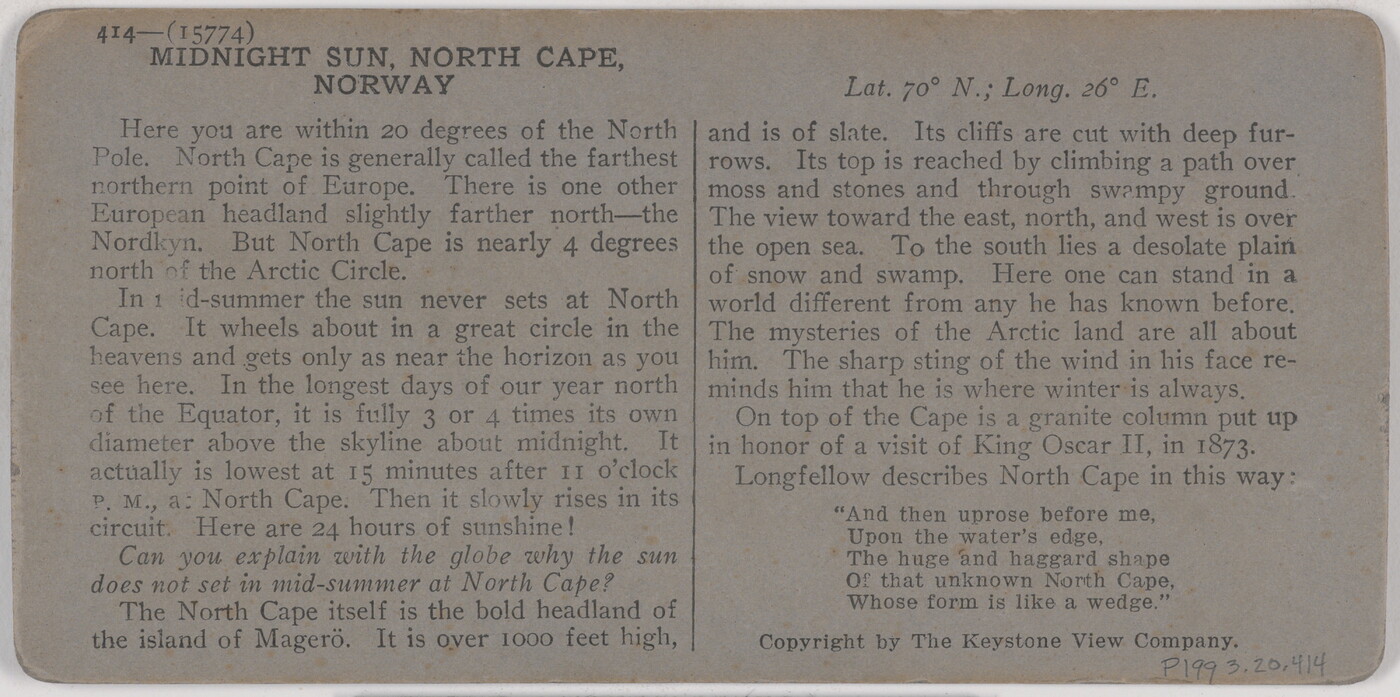 414—(15774)
MIDNIGHT SUN, NORTH CAPE,
NORWAY
Here you are within 20 degrees of the North
Pole. North Cape is generally called the farthest
northern point of Europe. There is one other
European headland slightly farther north—the
Nordkyn. But North Cape is nearly 4 degrees
north of the Arctic Circle.
In mid-summer the sun never sets at North
Cape. It wheels about in a great circle in the
heavens and gets only as near the horizon as you
see here. In the longest days of our year north
of the Equator, it is fully 3 or 4 times its own
diameter above the skyline about midnight. It
actually is lowest at 15 minutes after 11 o'clock
P. M., at North Cape. Then it slowly rises in its
circuit. Here are 24 hours of sunshine!
Can you explain with the globe why the sun
does not set in mid-summer at North Cape?
The North Cape itself is the bold headland of
the island of Magerö. It is over 1000 feet high,
Lat. 70° N.; Long. 26° E.
and is of slate. Its cliffs are cut with deep fur-
rows. Its top is reached by climbing a path over
moss and stones and through swampy ground.
The view toward the east, north, and west is over
the open sea. To the south lies a desolate plain
of snow and swamp. Here one can stand in a
world different from any he has known before.
The mysteries of the Arctic land are all about
him. The sharp sting of the wind in his face re-
minds him that he is where winter is always.
On top of the Cape is a granite column put up
in honor of a visit of King Oscar II, in 1873.
Longfellow describes North Cape in this way:
"And then uprose before me,
Upon the water's edge,
The huge and haggard shape
Of that unknown North Cape,
Whose form is like a wedge."
Copyright by The Keystone View Company.
P199 3.20.414